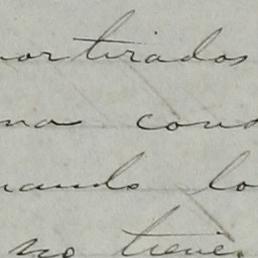 ortirados
na cons
uando lo
no tiene